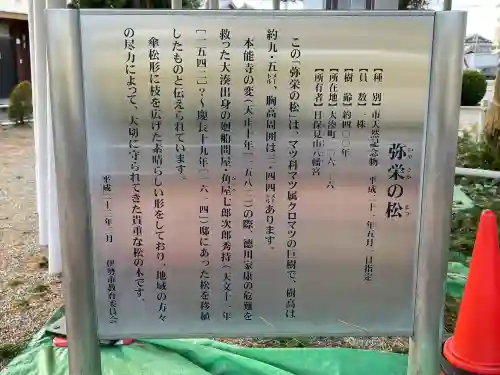 弥栄の松
いや さか まつ
【種　別】市天然記念物　平成二十一年五月一日指定
【員　数】一株
【樹　齢】約四〇〇年
【所在地】大湊町一一六一六
【所有者】日保見山八幡宮
この「弥栄の松」は、マツ科マツ属クロマツの巨樹で、樹高は
約九・五メートル、胸高周囲は三・四四メートルあります。
本能寺の変（天正十年［一五八二］）の際、徳川家康の危難を
救った大湊出身の廻船問屋・角屋七郎次郎秀持（天文十一年
［一五四二］？～慶長十九年［一六一四］）邸にあった松を移植
したものと伝えられています。
傘松形に枝を広げた素晴らしい形をしており、地域の方々
の尽力によって、大切に守られてきた貴重な松の木です。
平成二十二年三月　伊勢市教育委員会